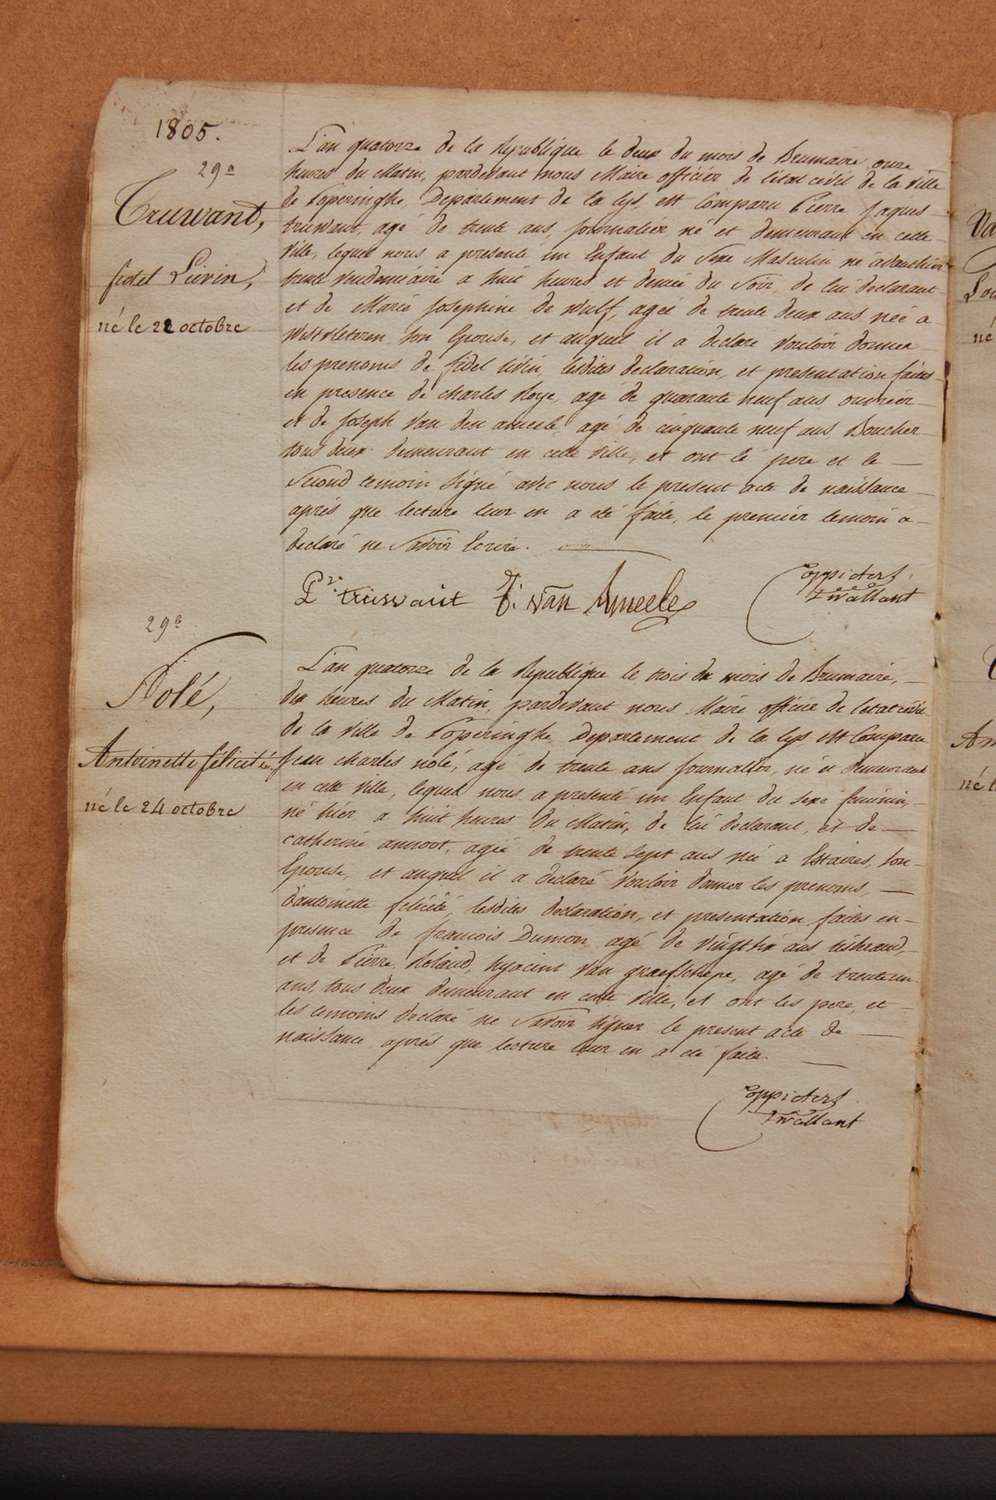 1805.
29a
Truwant,
fidel Livin,
né le 22 octobre
L'an quatorze de la Republique le deux du mois de Brumaire onze
heures du Matin, pardevant nous Maire officier de l'etat civil de la Ville
de Poperinghe, Departement de la Lys, est Comparu Pierre Jaques
truwant, agé de trente ans, journalier né et demeurant en cette
Ville, lequel nous a presenté un Enfant du Sexe Masculin né
trente Vendemiaire a huit heures et demie du Soir, de lui declarant
et de Marie Josephine de Wulf, agée de trente deux ans née a
Westvleteren, son Epouse, et auquel il a declaré Vouloir donner
les prenoms de fidel livin, lesdites declaration, et presentation faites
en presence de Charles Roye, agé de quarante neuf ans ouvrier
et de Joseph Van den ameele, agé de cinquante neuf ans, Boucher
tous deux demeurant en cette Ville, et ont le pere et le
Second temoin Signé avec nous le present acte de naissance
après que lecture leur en a été faite, le premier temoin a
declaré ne Savoir Ecrire.
Pr truwant J: van Ameele
29b
Nolé,
Antoinette félicité,
né le 24 octobre
L'an quatorze de la Republique le trois du mois de Brumaire,
dix heures du Matin, pardevant nous Maire officier de l'etat civil
de la Ville de Poperinghe, Departement de la Lys est Comparu
Jean Charles nolé, agé de trente ans Journallier, né et demeurant
en cette Ville, lequel nous a presenté un Enfant du sexe feminin,
né hier a huit heures du Matin, de lui declarant, et de
catherine annoot, agée de trente sept ans née a Estaires, son
Epouse, et auquel il a declaré Vouloir donner les prenoms,
d'antoinette felicité, lesdites declaration, et presentation faites en
presence de francois Dumon, agé de Vingt six ans
et de Pierre Hyacint Van graefschepe, agé de trente un
ans, tous deux demeurant en cette Ville, et ont les pere, et
les temoins declaré ne Savoir signer le present acte de
naissance après que lecture leur en a été faite.